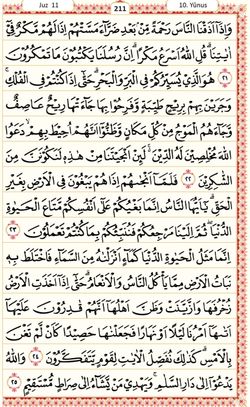 Juz 11
211
10. Yûnus
وَاِذَٓا اَذَقْنَا النَّاسَ رَحْمَةً مِنْ بَعْدِ ضَرَّٓاءَ مَسَّتْهُمْ اِذَا لَهُمْ مَكْرٌ ف۪ٓي
اٰيَاتِنَاۜ قُلِ اللّٰهُ اَسْرَعُ مَكْرًاۜ اِنَّ رُسُلَنَا يَكْتُبُونَ مَا تَمْكُرُونَ
﴿٢١﴾ هُوَ الَّذ۪ي يُسَيِّرُكُمْ فِي الْبَرِّ وَالْبَحْرِۜ حَتّٰٓى اِذَا كُنْتُمْ فِي الْفُلْكِۚ
وَجَرَيْنَ بِهِمْ بِر۪يحٍ طَيِّبَةٍ وَفَرِحُوا بِهَا جَٓاءَتْهَا ر۪يحٌ عَاصِفٌ
وَجَٓاءَهُمُ الْمَوْجُ مِنْ كُلِّ مَكَانٍ وَظَنُّٓوا اَنَّهُمْ اُح۪يطَ بِهِمْۙ دَعَوُا
اللّٰهَ مُخْلِص۪ينَ لَهُ الدّ۪ينَۚ لَئِنْ اَنْجَيْتَنَا مِنْ هٰذِه۪ لَنَكُونَنَّ مِنَ
الشَّاكِر۪ينَ ﴿٢٢﴾ فَلَمَّٓا اَنْجٰيهُمْ اِذَا هُمْ يَبْغُونَ فِي الْاَرْضِ بِغَيْرِ
الْحَقِّۜ يَٓا اَيُّهَا النَّاسُ اِنَّمَا بَغْيُكُمْ عَلٰٓى اَنْفُسِكُمْۙ مَتَاعَ الْحَيٰوةِ
الدُّنْيَاۘ ثُمَّ اِلَيْنَا مَرْجِعُكُمْ فَنُنَبِّئُكُمْ بِمَا كُنْتُمْ تَعْمَلُونَ ﴿٢٣﴾
اِنَّمَا مَثَلُ الْحَيٰوةِ الدُّنْيَا كَمَٓاءٍ اَنْزَلْنَاهُ مِنَ السَّمَٓاءِ فَاخْتَلَطَ بِه۪
نَبَاتُ الْاَرْضِ مِمَّا يَأْكُلُ النَّاسُ وَالْاَنْعَامُۜ حَتّٰٓى اِذَٓا اَخَذَتِ الْاَرْضُ
زُخْرُفَهَا وَازَّيَّنَتْ وَظَنَّ اَهْلُهَٓا اَنَّهُمْ قَادِرُونَ عَلَيْهَٓاۙ
اَتٰيهَٓا اَمْرُنَا لَيْلًا اَوْ نَهَارًا فَجَعَلْنَاهَا حَص۪يدًا كَاَنْ لَمْ تَغْنَ
بِالْاَمْسِۜ كَذٰلِكَ نُفَصِّلُ الْاٰيَاتِ لِقَوْمٍ يَتَفَكَّرُونَ ﴿٢٤﴾ وَاللّٰهُ
يَدْعُٓوا اِلٰى دَارِ السَّلَامِۜ وَيَهْد۪ي مَنْ يَشَٓاءُ اِلٰى صِرَاطٍ مُسْتَق۪يمٍ ﴿٢٥﴾